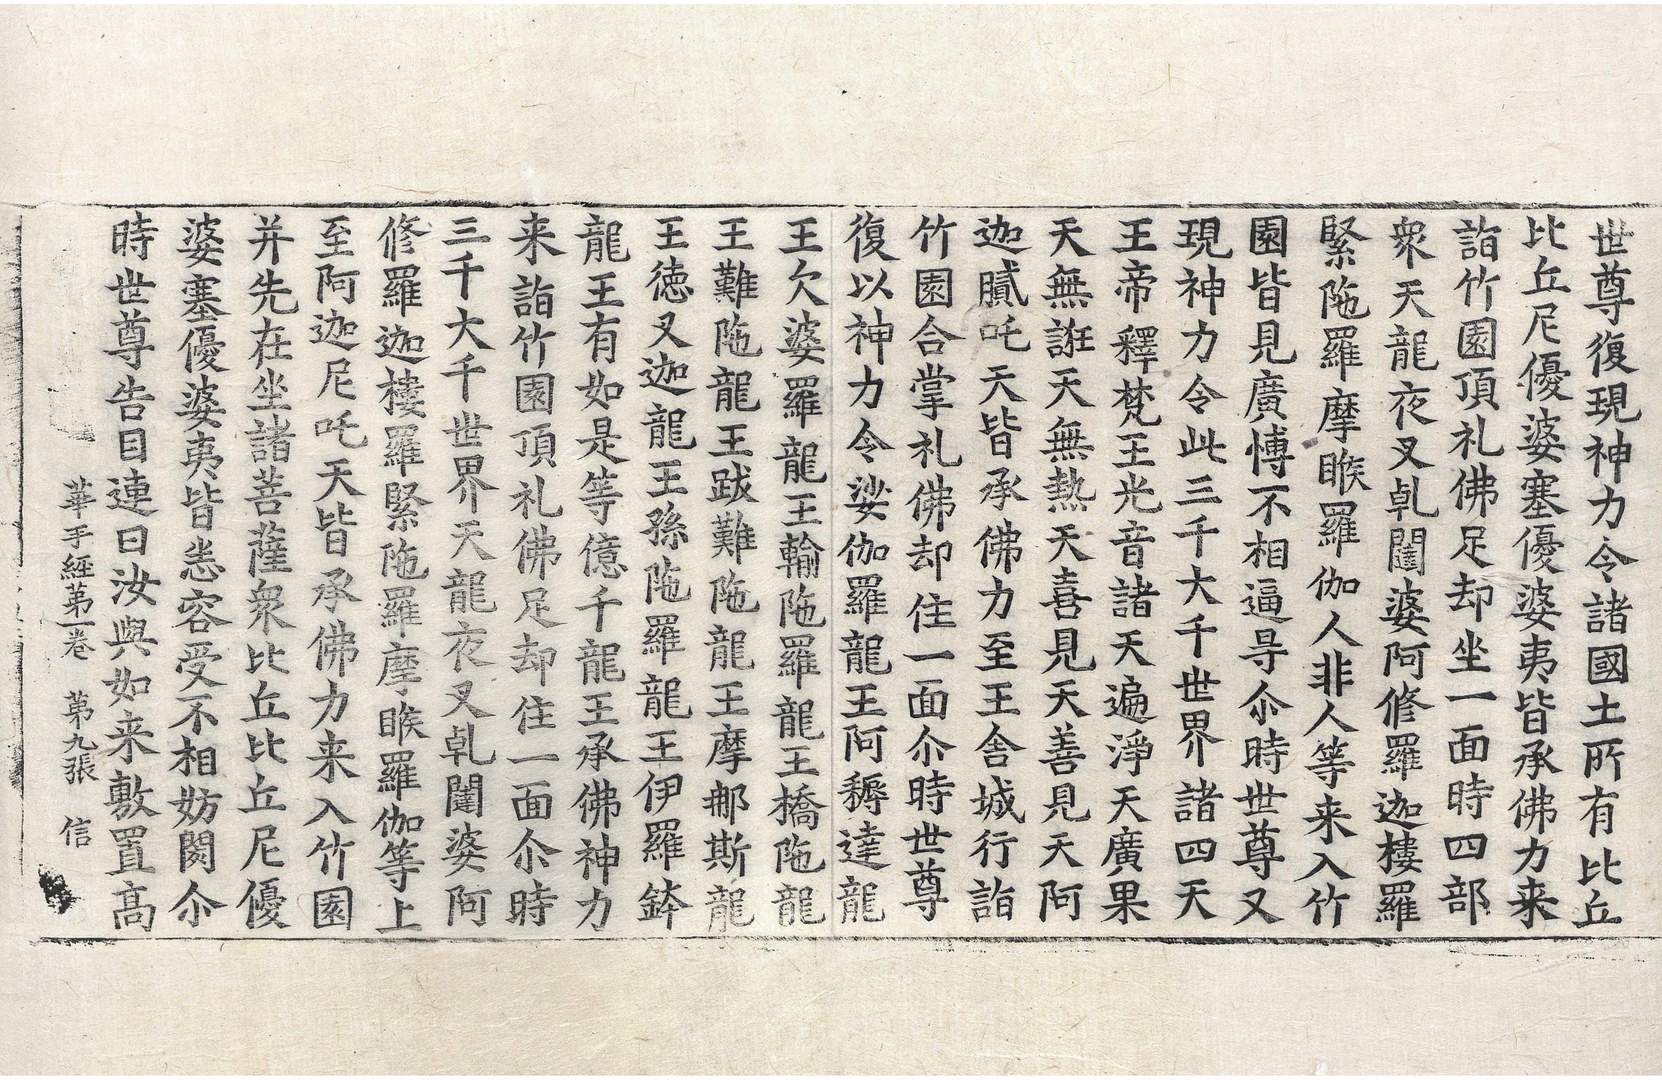 世尊復現神力令諸國土所有比丘
比丘尼優婆塞優婆夷皆承佛力来
詣竹園頂礼佛足却坐一面時四部
衆天龍夜叉乹闥婆阿修羅迦樓羅
緊陁羅摩睺羅伽人非人等来入竹
園皆見廣愽不相逼㝵尒時世尊又
現神力令此三千大千世界諸四天
王帝釋梵王光音諸天遍淨天廣果
天無誑天無熱天喜見天善見天阿
迦膩吒天皆承佛力至王舍城行詣
竹園合掌礼佛却住一面尒時世尊
復以神力令娑伽羅龍王阿耨達龍
王欠婆羅龍王輸陁羅龍王橋陁龍
王難陁龍王跋難陁龍王摩那斯龍
王徳叉迦龍王孫陁羅龍王伊羅鉢
龍王有如是等億千龍王承佛神力
来詣竹園頂礼佛足却住一面尒時
三千大千世界天龍夜叉乹闥婆阿
修羅迦樓羅緊陁羅摩睺羅伽等上
至阿迦尼吒天皆承佛力来入竹園
并先在坐諸菩薩衆比丘比丘尼優
婆塞優婆夷皆悉容受不相妨閡尒
時世尊告目連曰汝與如来敷置髙
華手經第一卷 第九張 信